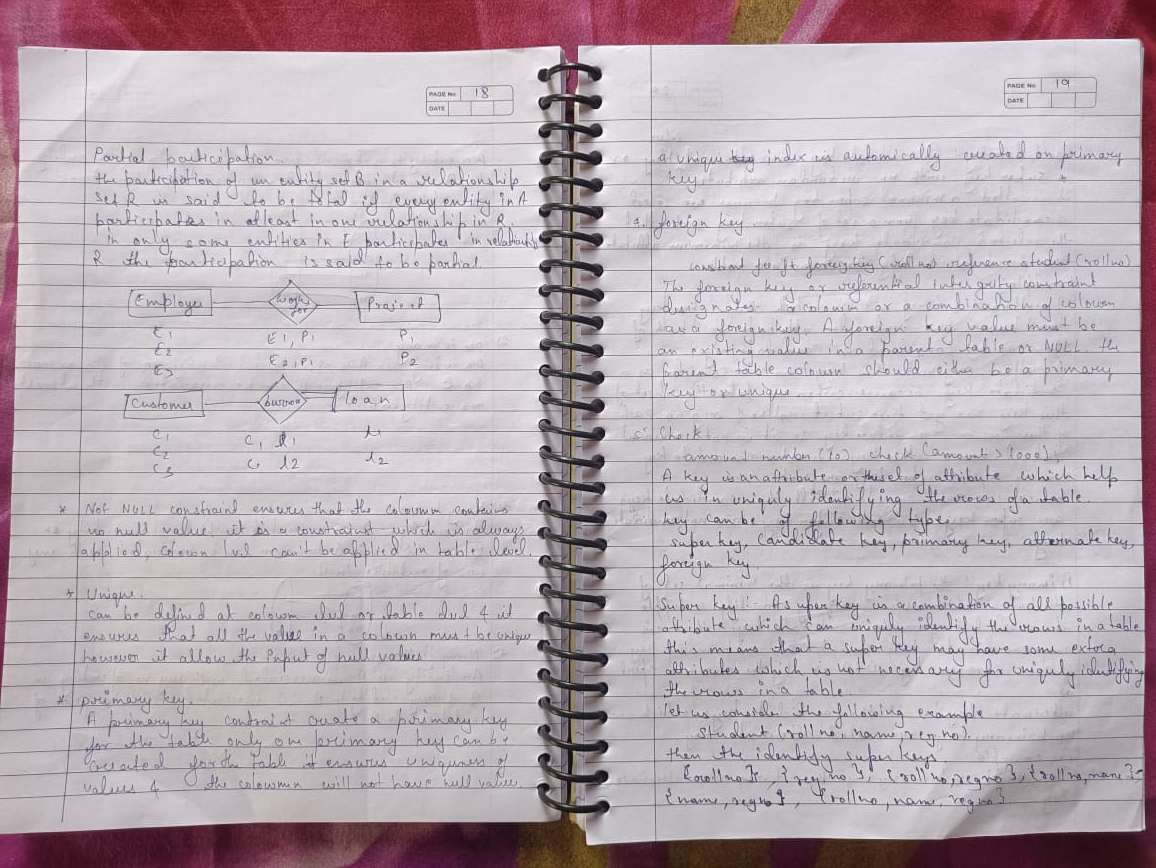 PAGE No 18
DATE
Partial participation.
the participation of an entity set B in a relationship
set R is said to be total if every entity in A
participates in atleast in one relationship in R.
in only some entities in E participates in relationship
R the participation is said to be partial.
Employee works for Project
E1 E1, P1 P1
E2 E2, P1 P2
E3
Customer burrow loan
C1 C1 l1 l1
C2 C l2 l2
C3
* Not NULL constraint ensures that the coloumn contains
no null value. it is a constraint which is always
applied, coloumn lvl can't be applied in table level.
* Unique.
can be defined at coloumn lvl or table lvl & it
ensures that all the value in a coloumn must be unique
however it allow the input of null values
* primary key.
A primary key contraint create a primary key
for the table only one primary key can be
created for the table it ensures uniquness of
values & the coloumn will not have null value.
PAGE No 19
DATE
a unique key index is automically created on primary
key.
foreign key
foreign key (roll no) reference student (roll no)
The foreign key or referential intergrity constraint
designates a coloumn or a combination of coloumn
as a foreign key. A foreign key value must be
an existing value in a parent table or NULL. the
parent table coloumn should either be a primary
key or unique
5. Check.
amount number (10) check (amount > 1000)
A key is an attribute or the set of attribute which help
us in uniquly identifying the rows of a table.
key can be of following type.
super key, candidate key, primary key, alternate key,
foreign key.
Super key :- A super key is a combination of all possible
attribute which can uniquly identify the rows in a table
this means that a super key may have some extra
attributes which is not necessary for uniquly identifying
the rows in a table
let us consider the following example
Student (roll no, name, reg no).
then the identify super keys.
{roll no}, {reg no}, {roll no, reg no}, {roll no, name}
{name, reg no}, {roll no, name, reg no}